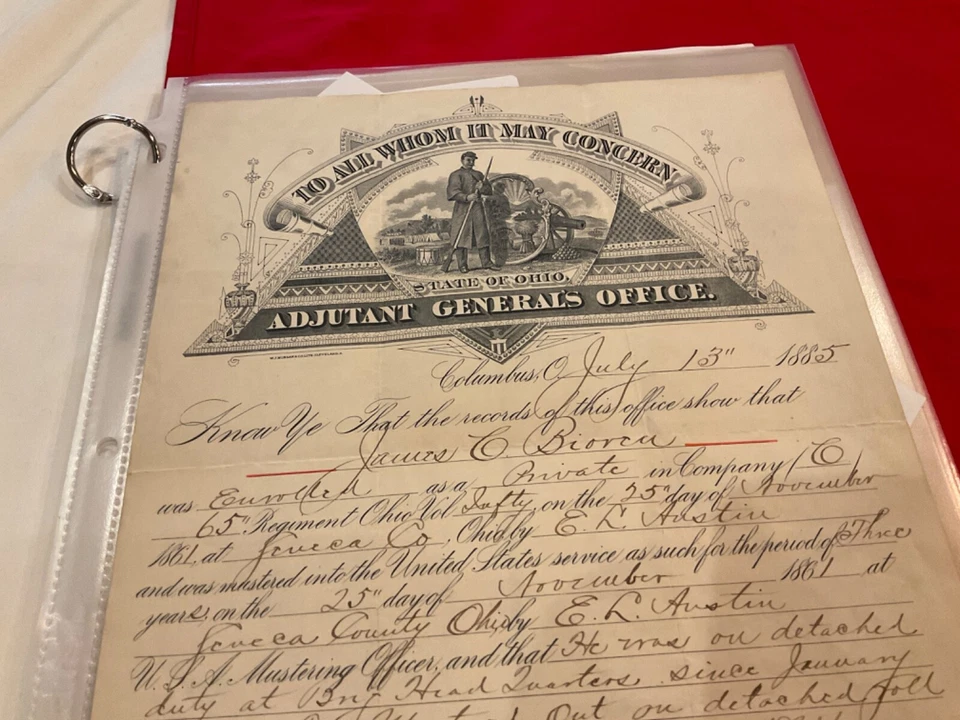 TO ALL WHOM IT MAY CONCERN
STATE OF OHIO,
ADJUTANT GENERAL'S OFFICE.
Columbus, O. July 13" 1885
Know Ye That the records of this office show that
James C.
was Enrolled as a Private in Company (C)
65" Regiment Ohio Vol Infty, on the 25" day of November
1861, at Seneca Co, Ohio by E. L. Austin
and was mustered into the United States service as such for the period of Three
years, on the 25" day of November 1861 at
Seneca County Ohio by E. L. Austin
U. S. A. Mustering Officer, and that He was on detached
duty at Brig Head Quarters since January
Out on detached roll